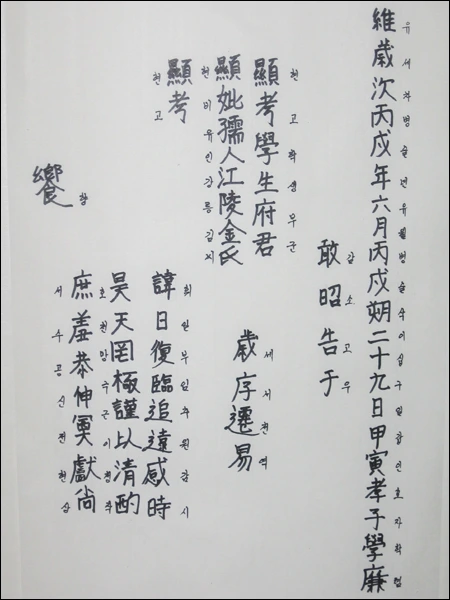 유세차병술년유월병술삭이십구일갑인효자학렴
維歲次丙戌年六月丙戌朔二十九日甲寅孝子學廉
감소고우
敢昭告于
현고학생부군
顯考學生府君
현비유인강릉김씨
顯妣孺人江陵金氏
세서천역
歲序遷易
현고
顯考
휘일부임추원감시
諱日復臨追遠感時
호천망극근이청주
昊天罔極謹以清酌
서수공신전헌상
庶羞恭伸奠獻尙
향
饗